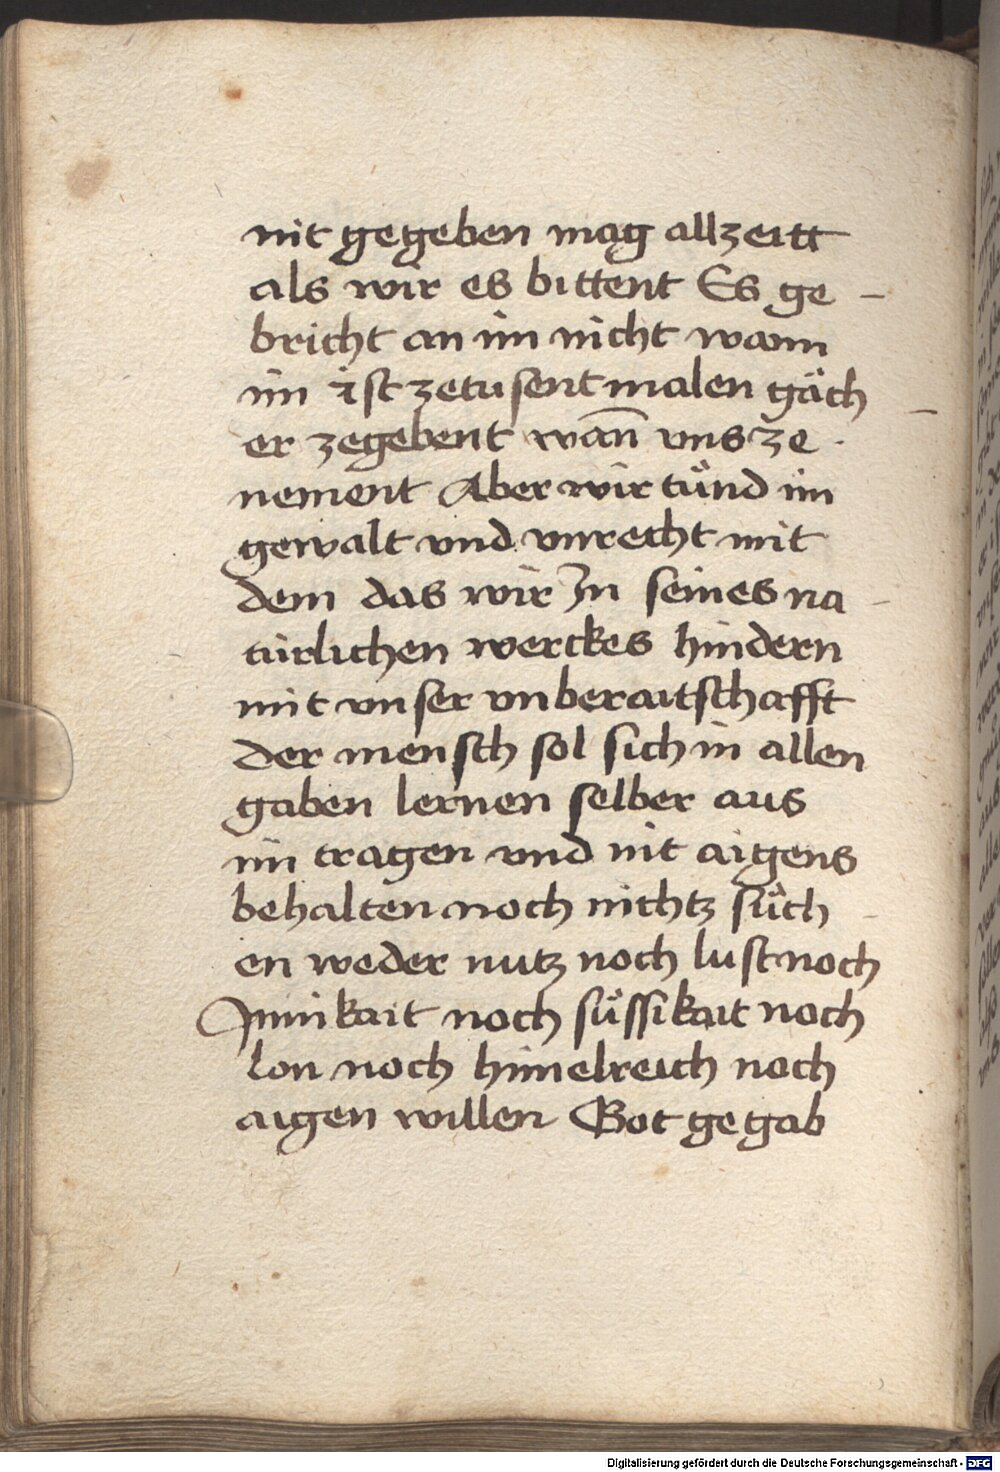 nit gegeben mag allzeitt
als wir es bittent Es ge –
bricht an im nicht wann
im ist zetusent malen gäch
er zegebent wan̄ vns ze
nement Aber wir tůnd im
gewalt vnd vnrecht mit
dem das wir Jn seines na –
türlichen werckes hindern
mit vnser vnberaitschafft
der mensch sol sich in allen
gaben lernen selber aus
im tragen vnd nit aigens
behalten noch nichtz sůch –
en weder nutz noch lust noch
Jnnikait noch süssikait noch
lon noch himelreich noch
aigen willen Got gegab
Digitalisierung gefördert durch die Deutsche Forschungsgemeinschaft - DFG